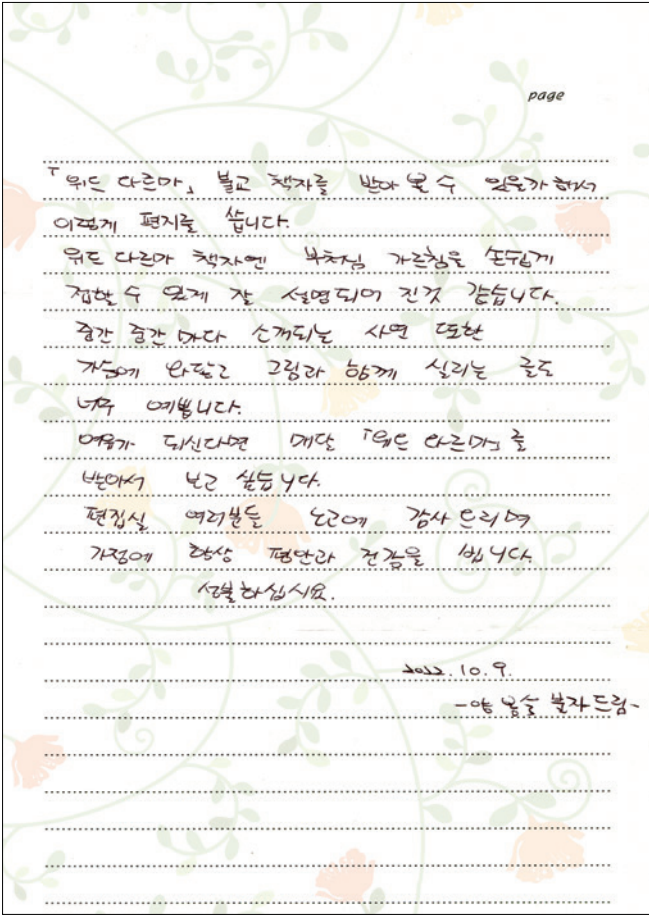 page
「위드 다르마」 불교 책자를 받아 볼 수 있을가 해서
이렇게 편지를 씁니다.
위드 다르마 책자엔 부처님 가르침을 손쉽게
접할 수 있게 잘 설명되어 진것 같습니다.
중간 중간 마다 소개되는 사연 또한
가슴에 와닿고 그림과 함께 실리는 글도
너무 예쁩니다.
여유가 되신다면 매달 「위드 다르마」를
받아서 보고 싶습니다.
편집실 여러분들 노고에 감사 드리며
가정에 항상 평안과 건강을 빕니다.
성불하십시요.
2022. 10. 9.
- 불자드림-